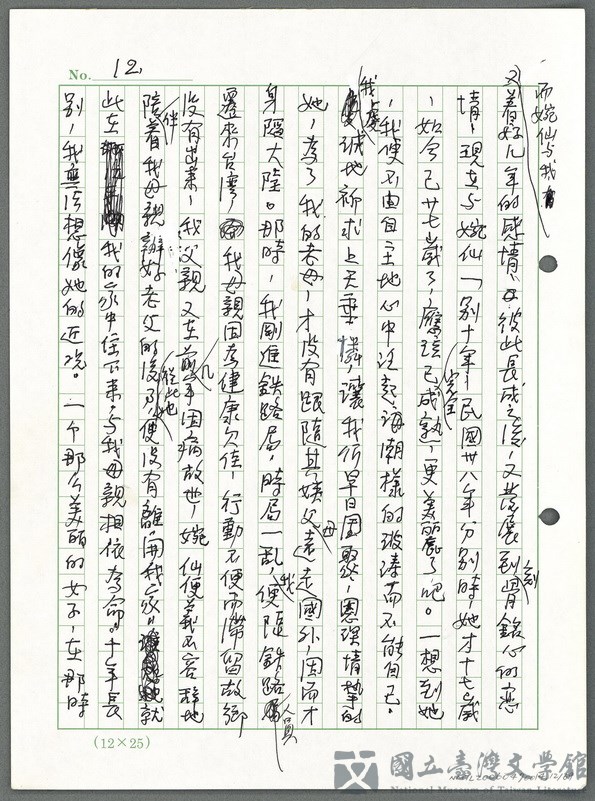 No. 12
而婉仙與我
又着好几年的感情,自彼此長成之後,又發展到骨銘心的戀
刻
情,現在與婉仙一別十年,民國卅八年分別時,她才十七歲
,如今已廿七歲了,應該已完全成熟,更美麗了吧。一想到她
,我便不由自主地心中泛起海潮樣的波濤而不能自已。
我虔誠地祈求上天垂憐,讓我們早日團聚,恩深情摯的
她,為了我的老母,才沒有跟隨其姨父母遠走國外,因而才
身陷大陸。那時,我剛進鐵路局,時局一亂,我便隨鐵路人員
遷來台灣,我母親因為健康欠佳,行動不便而滯留故鄉
沒有出來,我父親又在前几年因病故世,婉仙便義不容辭地
陪伴着我母親辦好老父的後事,從此她便沒有離開我家,就
此在我的家中住下來,與我母親相依為命。十年長
別,我無法想像她的近況。一个那么美丽的女子,在那時
(12×25)
國立臺灣文學館
National Museum of Taiwan Literature